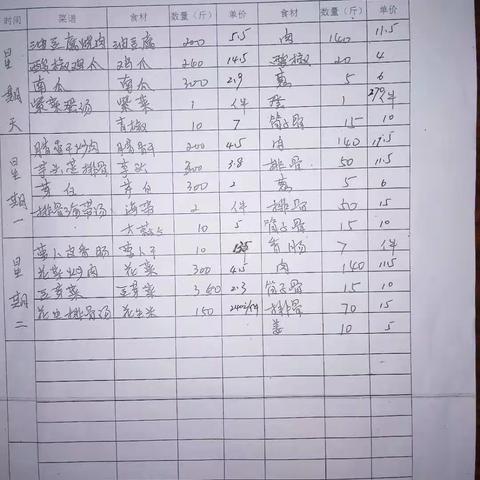 时间 菜谱 食材 数量（斤） 单价 食材 数量（斤） 单价
星期天 油豆腐烧肉 油豆腐 200 5.5 肉 140 11.5
酸椒鸡爪 鸡爪 260 14.5 酸椒 20 4
南瓜 南瓜 300 2.9 葱 5 6
紫菜蛋汤 紫菜 1 件 蛋 1 件
青椒 10 7 筒子骨 15 10
星期一 200 4.5 肉 140 11.5
芋头蒸排骨 芋头 300 3.8 排骨 50 11.5
芽白 芽白 300 2 葱 5 6
排骨海带汤 海带 2 件 排骨 50 15
10 5 筒子骨 15 10
星期二 萝卜皮香肠 萝卜干 10 香肠 7 件
花菜炒肉 花菜 300 4.5 肉 140 11.5
豆芽菜 豆芽菜 360 2.3 筒子骨 15 10
花生排骨汤 花生米 150 排骨 70 15
姜 10 5